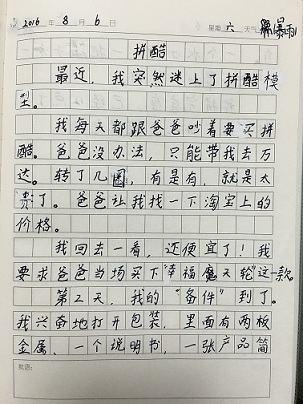 2016 年 8 月 6 日 星期 六 天气 暴雨
拼酷
最近，我突然迷上了拼酷模
型。
我每天都跟爸爸吵着要买拼
酷。爸爸没办法，只能带我去万
达。转了几圈，有是有，就是太
贵了。爸爸让我找一下淘宝上的
价格。
我回去一看，还便宜了！我
要求爸爸当场买下"幸福摩天轮"这一款。
第2天，我的"备件"到了。
我兴奋地打开包装，里面有两板
金属、一个说明书，一张产品简
批语：